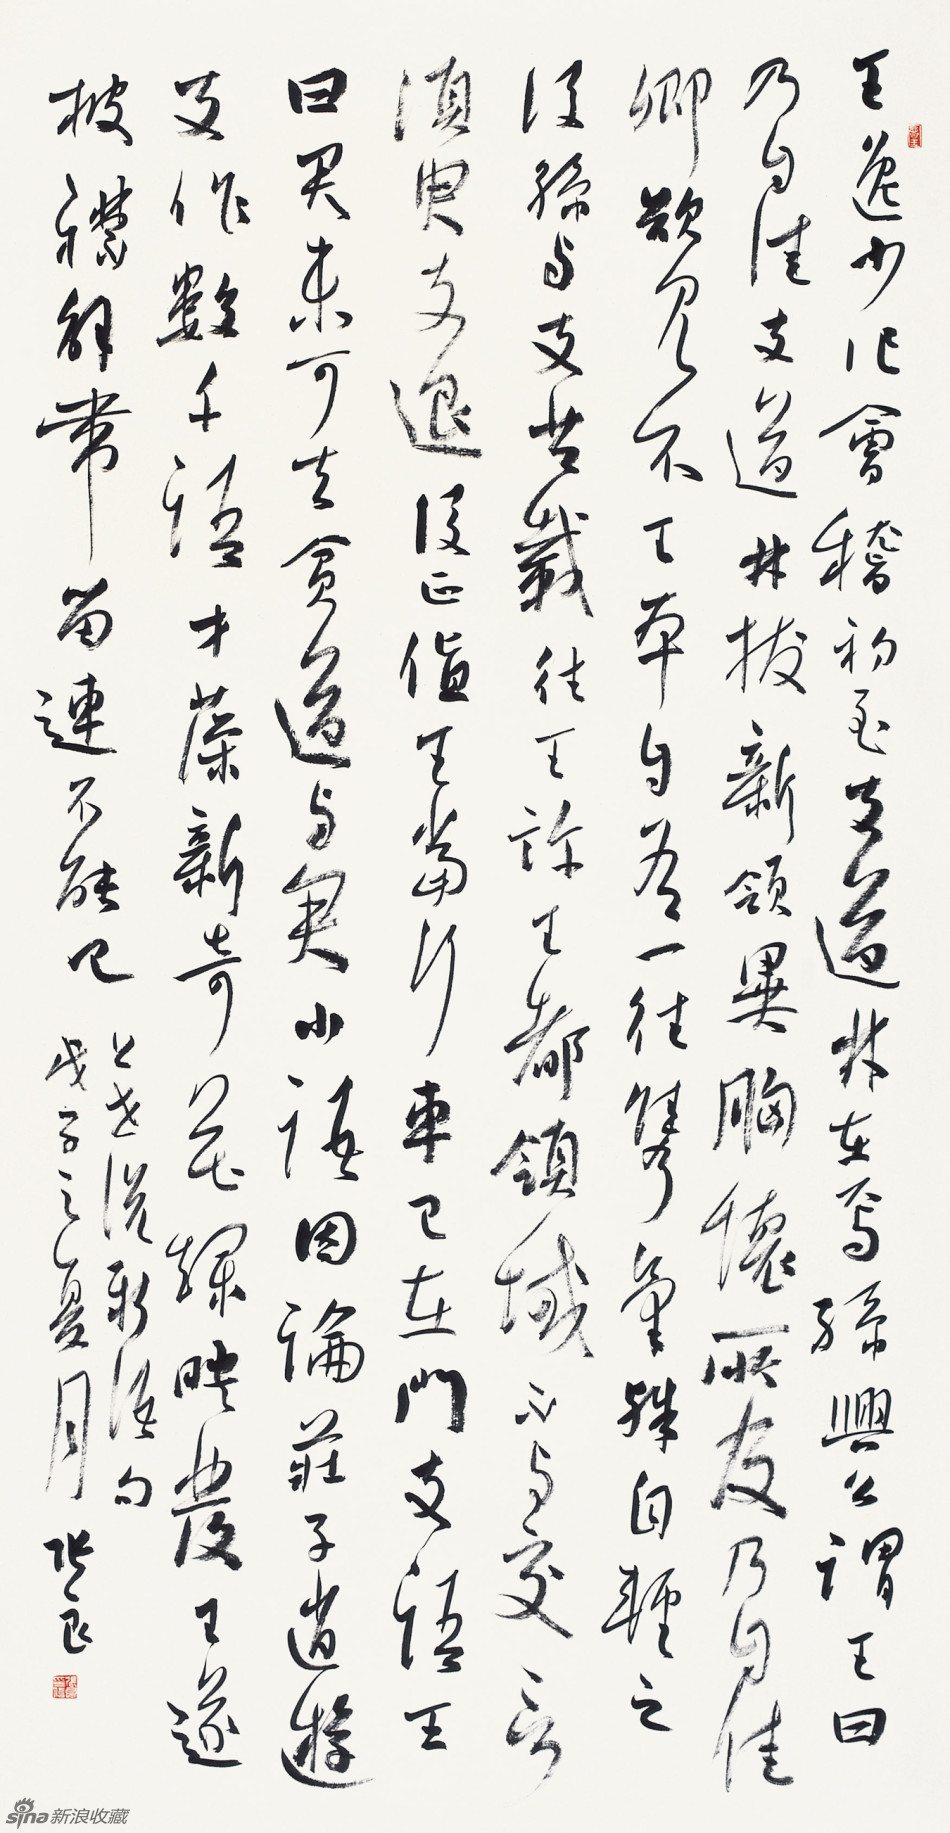 王逸少作會稽初至支道林在焉孫興公謂王曰
乃自佳支道林拔新領異胸懷所及乃自佳
卿欲見不王本自有一往雋氣殊自輕之
後孫與支共載往王許王都領域不與交言
須臾支退後正值王當行車已在門支語王
曰君未可去貧道與君小語因論莊子逍遙遊
支作數千語才藻新奇花爛映發王遂
披襟解帶留連不能已
右世說新語句
戊子之夏月 張良
sina新浪收藏